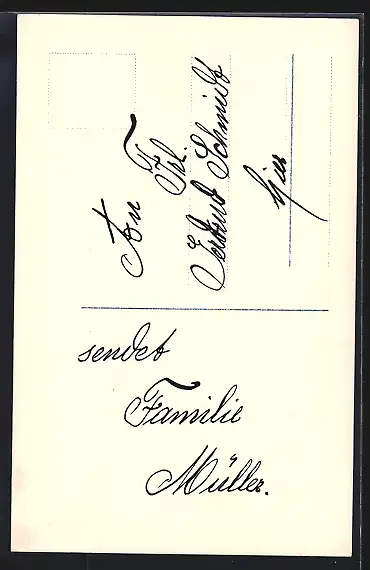 An
Frl.
Gertrud Schmidt
hier
sendet
Familie
Müller.